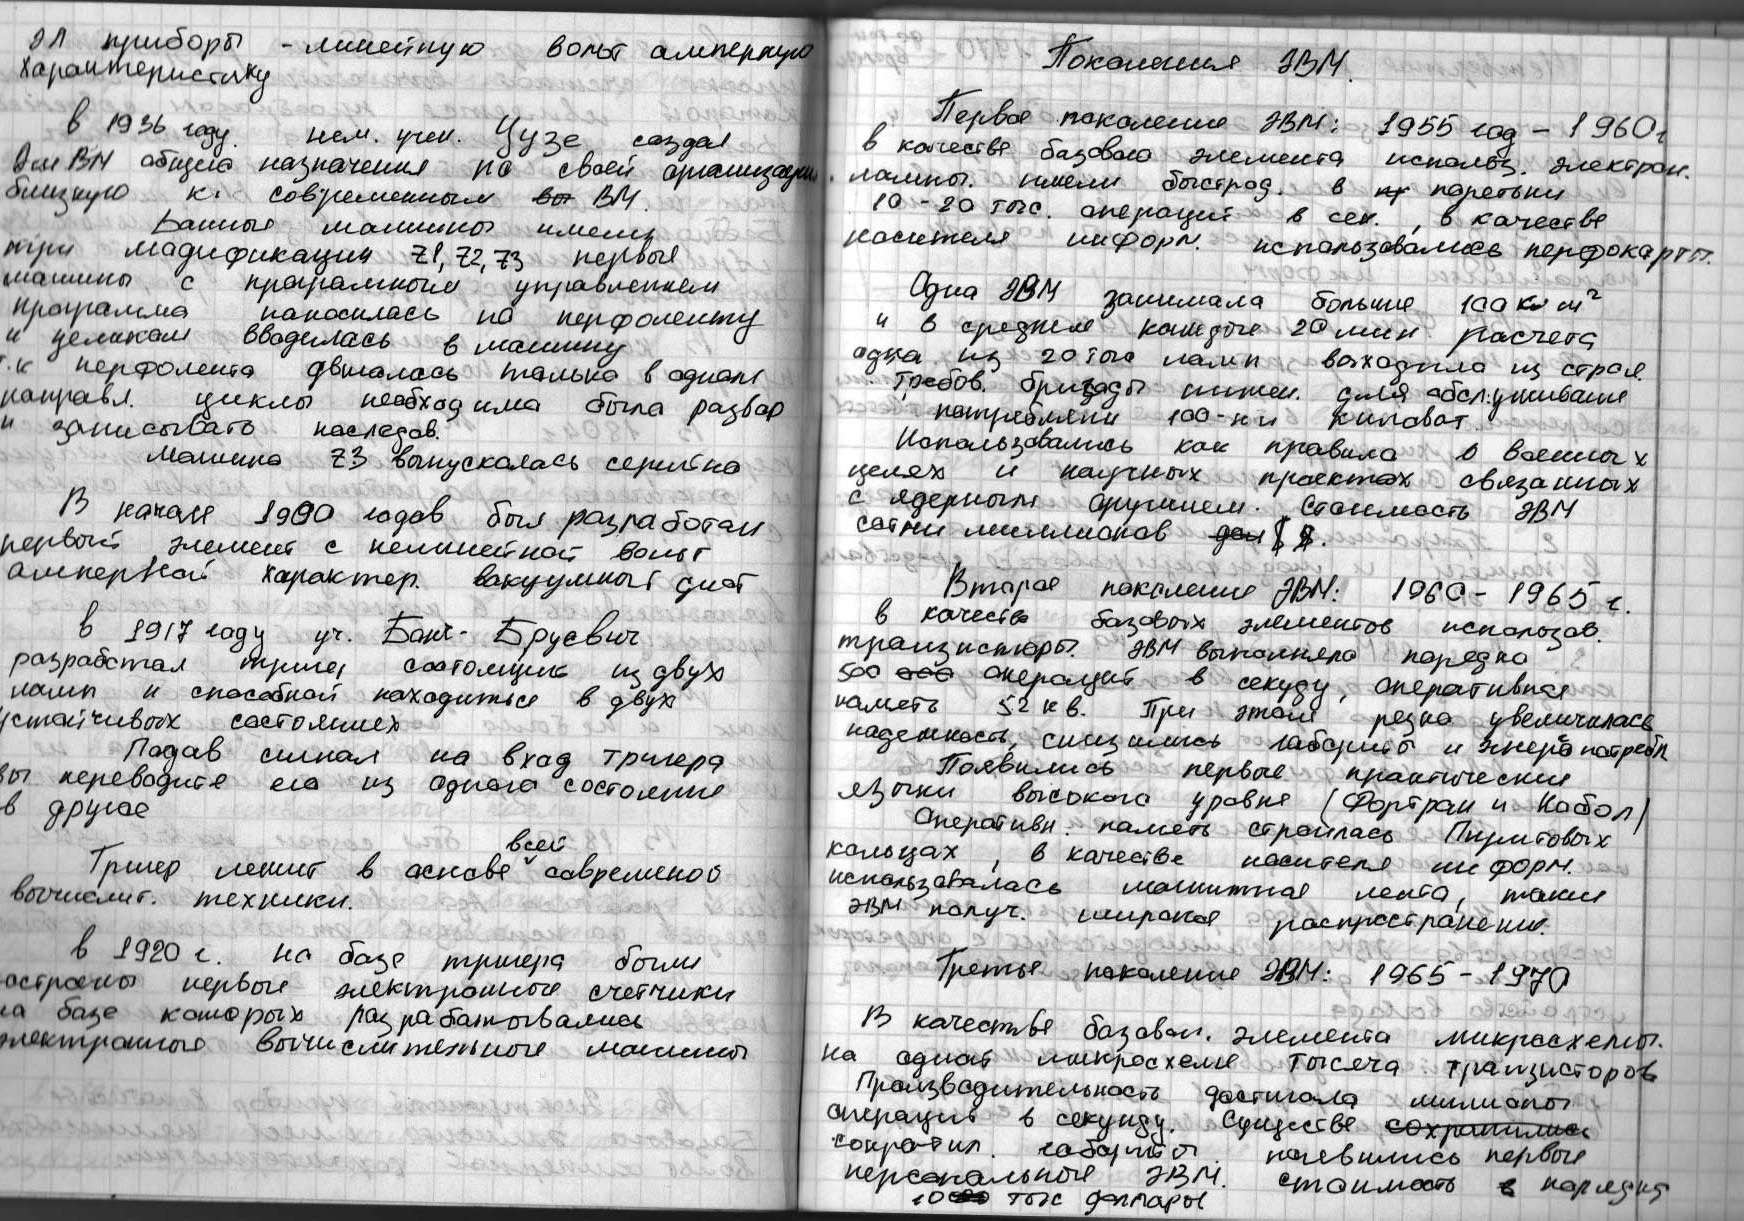 эл приборы - линейную вольт амперную
характеристику
в 1936 году нем. учен. Цузе создал
Эл ВМ общего назначения по своей организации
близкую к современным ВМ.
Данные машины имели
три модификации Z1, Z2, Z3 первые
машины с програмным управлением
программа наносилась на перфоленту
и целиком вводилась в машину
т.к перфолента двигалась только в одном
направл. циклы необходима была развор
и записывать последов.
Машина Z3 выпускалась серийно
В начале 1900 годов был разработан
первый элемент с нелинейной вольт
амперной характер. вакуумный диот
в 1917 году уч. Банч-Бруевич
разработал тригер, состоящий из двух
ламп и способной находиться в двух
устойчивых состояниях
Подав сигнал на вход тригера
вы переводите его из одного состояние
в другое
Тригер лежит в основе всей современой
вычислит. техники.
в 1920 г. на базе тригера были
построены первые электронные счетчики
на базе которых разрабатывались
электронные вычислительные машины
Поколения ЭВМ.
Первое поколение ЭВМ: 1955 год - 1960г
в качестве базового элемента использ. электрон.
лампы. имели быстрод. в поретьки
10-20 тыс. операций в сек., в качестве
носителя информ. использовались перфокарты.
Одна ЭВМ занимала больше 100 кв m²
и в среднем каждые 20 мин расчета
одна из 20 тыс ламп выходила из строя.
Требов. бригады инжен. для обслуживание
потребляли 100-ни киловат.
Использовались как правило в военных
целях и научных проектах связанных
с ядерным оружием. Стоимость ЭВМ
сотни миллионов дол $.
Второе поколение ЭВМ: 1960 - 1965 г.
в качестве базовых элементов использов.
транзисторы. ЭВМ выполняла порядка
500 операций в секуду, оперативная
память 32 кв. При этом резко увеличилась
надежность, снизились габориты и энергопотребл
Появились первые практические
языки высокого уровня (Фортран и Кобол)
Оперативн. память строилась Пиритовых
кольцах, в качестве носителя информ.
использовалась магнитная лента, такие
ЭВМ получ. широкое распространение.
Третье поколение ЭВМ: 1965 - 1970
В качестве базовой. элемента микросхемы.
на одной микросхеме тысяча транзисторов
Производительность достигала милионы
операций в секунду. Существе сохранились
сократил. габориты. появились первые
персональные ЭВМ. стоимость в порядка
10 тыс доллары